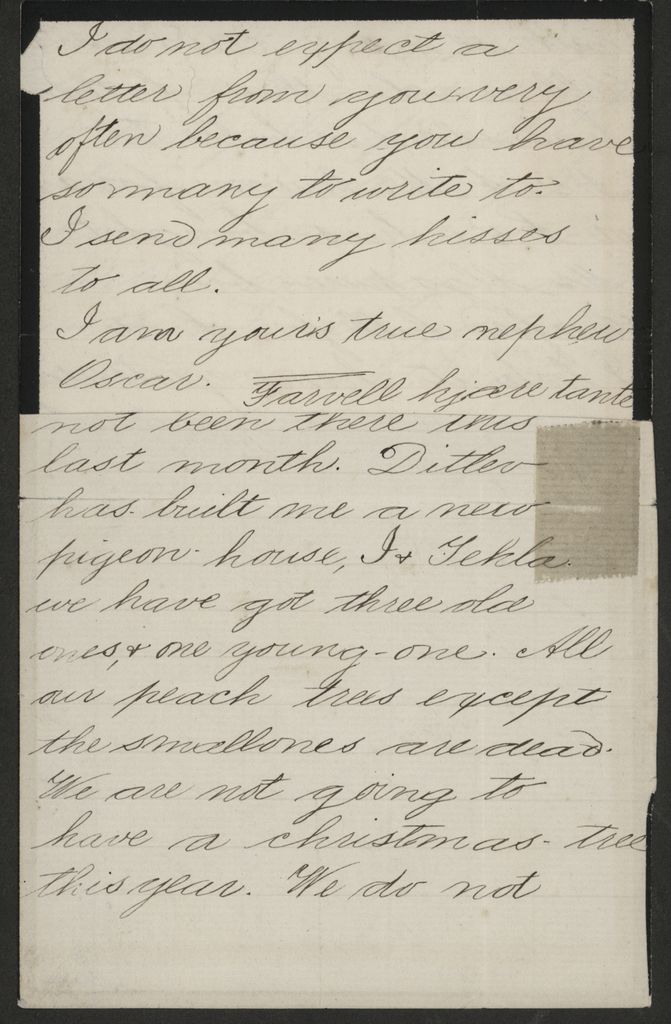 I do not expect a
letter from you very
often because you have
so many to write to.
I send many kisses
to all.
I am your's true nephew
Oscar. Farvell kjære tante
not been there this
last month. Ditlev
has built me a new
pigeon-house, I & Tekla
we have got three old
ones, & one young-one. All
our peach trees except
the small ones are dead.
We are not going to
have a christmas-tree
this year. We do not